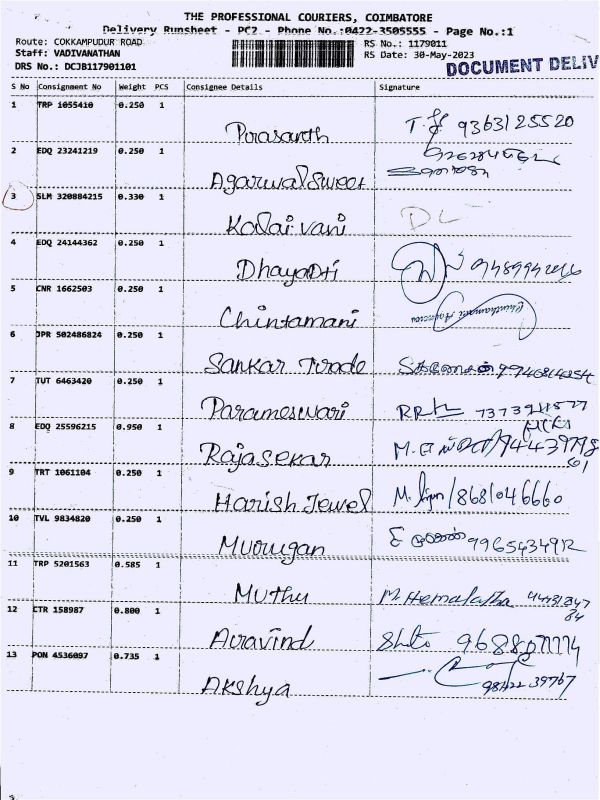 THE PROFESSIONAL COURIERS, COIMBATORE
Delivery Runsheet - PC2 - Phone No.:0422-3505555 - Page No.:1
Route: COKKAMPUDUR ROAD RS No.: 1179011
Staff: VADIVANATHAN RS Date: 30-May-2023
DRS No.: DCJB117901101 DOCUMENT DELIV
S No Consignment No Weight PCS Consignee Details Signature
1 TRP 1055410 0.250 1
Prasanth 9363125520
2 EDQ 23241219 0.250 1
Agarwal Sweet
3 SLM 320884215 0.330 1
Kalai vani DL
4 EDQ 24144362 0.250 1
Dhayadri
5 CNR 1662503 0.250 1
Chintamani
6 JPR 502486824 0.250 1
Sankar Trade
7 TUT 6463420 0.250 1
Parameswari
8 EDQ 25596215 0.950 1
Rajasekar
9 TRT 1061104 0.250 1
Harish Jewel 8681046660
10 TVL 9834820 0.250 1
Murugan
11 TRP 5201563 0.585 1
Muthu M. Hemalatha
12 CTR 158987 0.800 1
Aravind
13 PON 4536097 0.735 1
Akshya